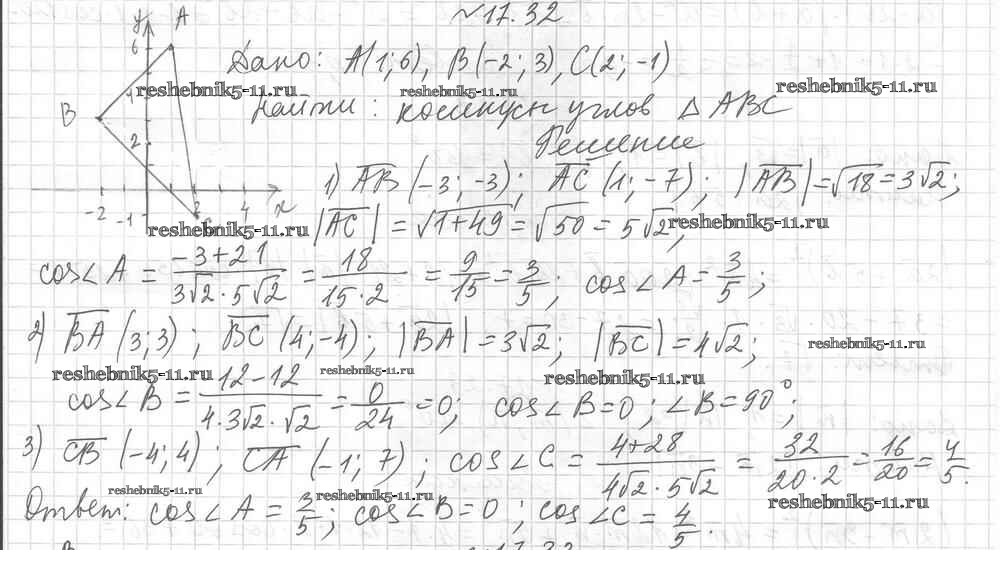 №17.32
y A
6
Дано: A(1;6), B(-2;3), C(2;-1)
reshebnik5-11.ru reshebnik5-11.ru reshebnik5-11.ru
4
B Найти: косинусы углов △ABC
2 Решение
1) AB (-3;-3); AC (1;-7); |AB|=√18=3√2;
-2 -1 2 4 x
reshebnik5-11.ru |AC|=√1+49=√50=5√2; reshebnik5-11.ru
cos∠A = (-3+21)/(3√2·5√2) = 18/(15·2) = 9/15 = 3/5; cos∠A = 3/5;
2) BA (3;3); BC (4;-4); |BA|=3√2; |BC|=4√2; reshebnik5-11.ru
reshebnik5-11.ru reshebnik5-11.ru reshebnik5-11.ru
cos∠B = (12-12)/(4·3√2·√2) = 0/24 = 0; cos∠B=0; ∠B=90°;
3) CB (-4;4); CA (-1;7); cos∠C = (4+28)/(4√2·5√2) = 32/(20·2) = 16/20 = 4/5.
reshebnik5-11.ru reshebnik5-11.ru reshebnik5-11.ru
Ответ: cos∠A = 3/5; cos∠B=0; cos∠C = 4/5.